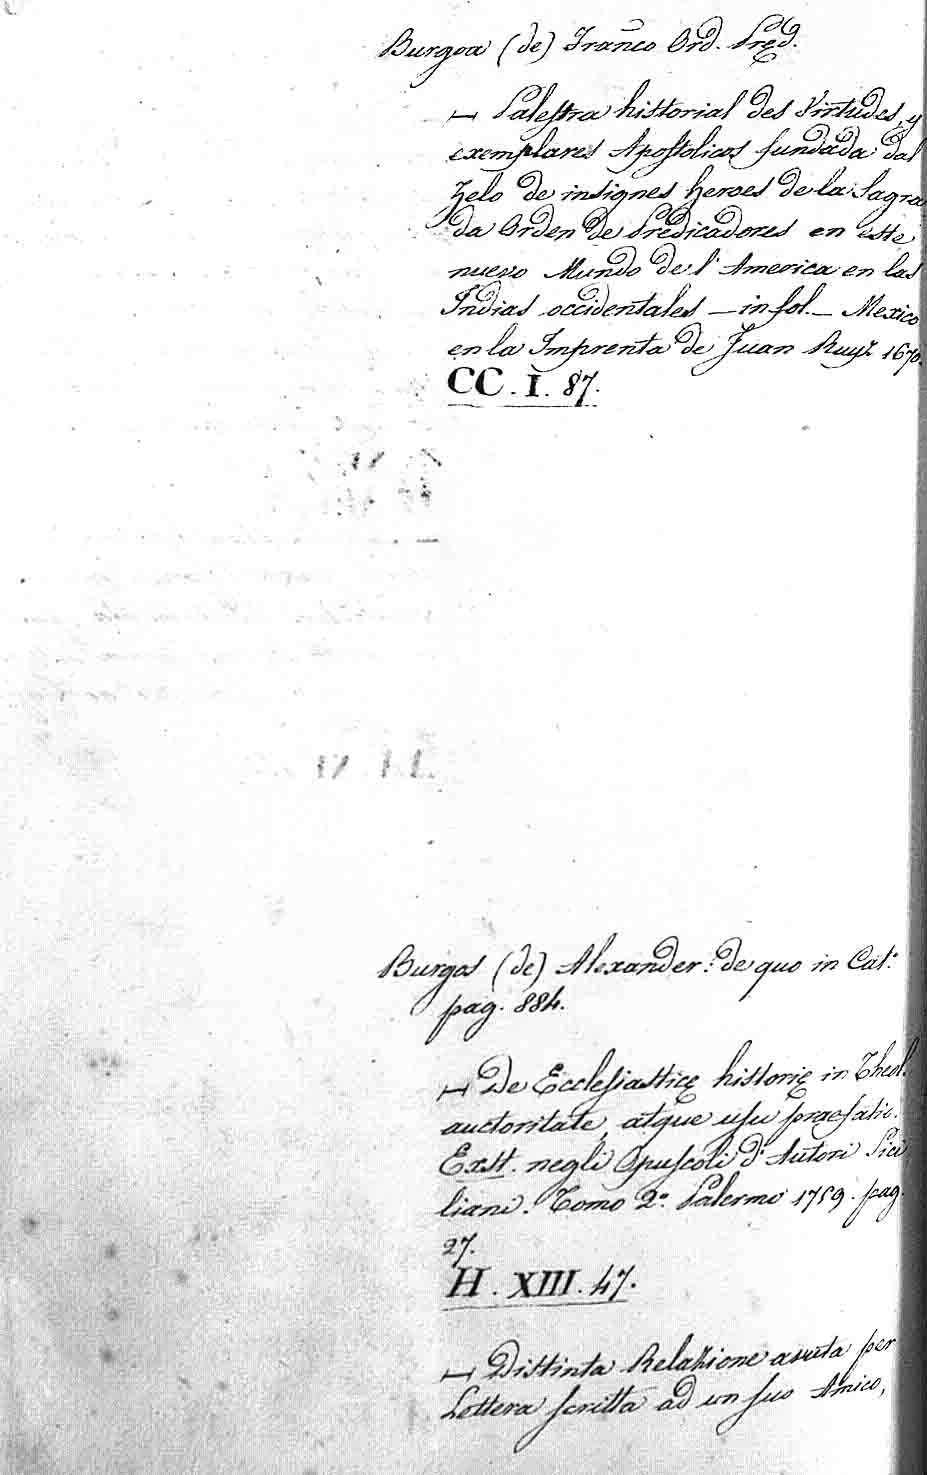 Burgoa (de) Fran̄co Ord. Pręd.
— Palestra historial des Virtudes, y
exemplares Apostolicos fundada dal
Zelo de insignes heroes de la Sagra
da Orden de Predicadores en este
nuevo Mundo de l' America en las
Indias occidentales — in fol. — Mexico
en la Imprenta de Juan Ruyz 1670.
CC. I. 87.
Burgos (de) Alexander: de quo in Cat.º
pag. 884.
— De Ecclesiasticę historię in Theol.
auctoritate, atque usu praefatio.
Exst. negli Opuscoli d' Autori Sici
liani. Tomo 2.º Palermo 1759. pag.
27.
H. XIII. 47.
— Distinta Relazione avuta per
Lettera scritta ad un suo Amico,